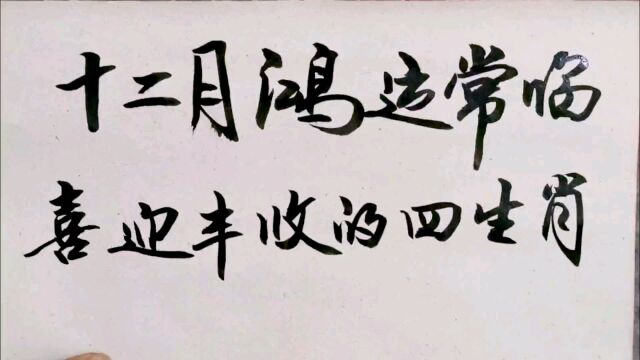 十二月鸿运常临
喜迎丰收的四生肖